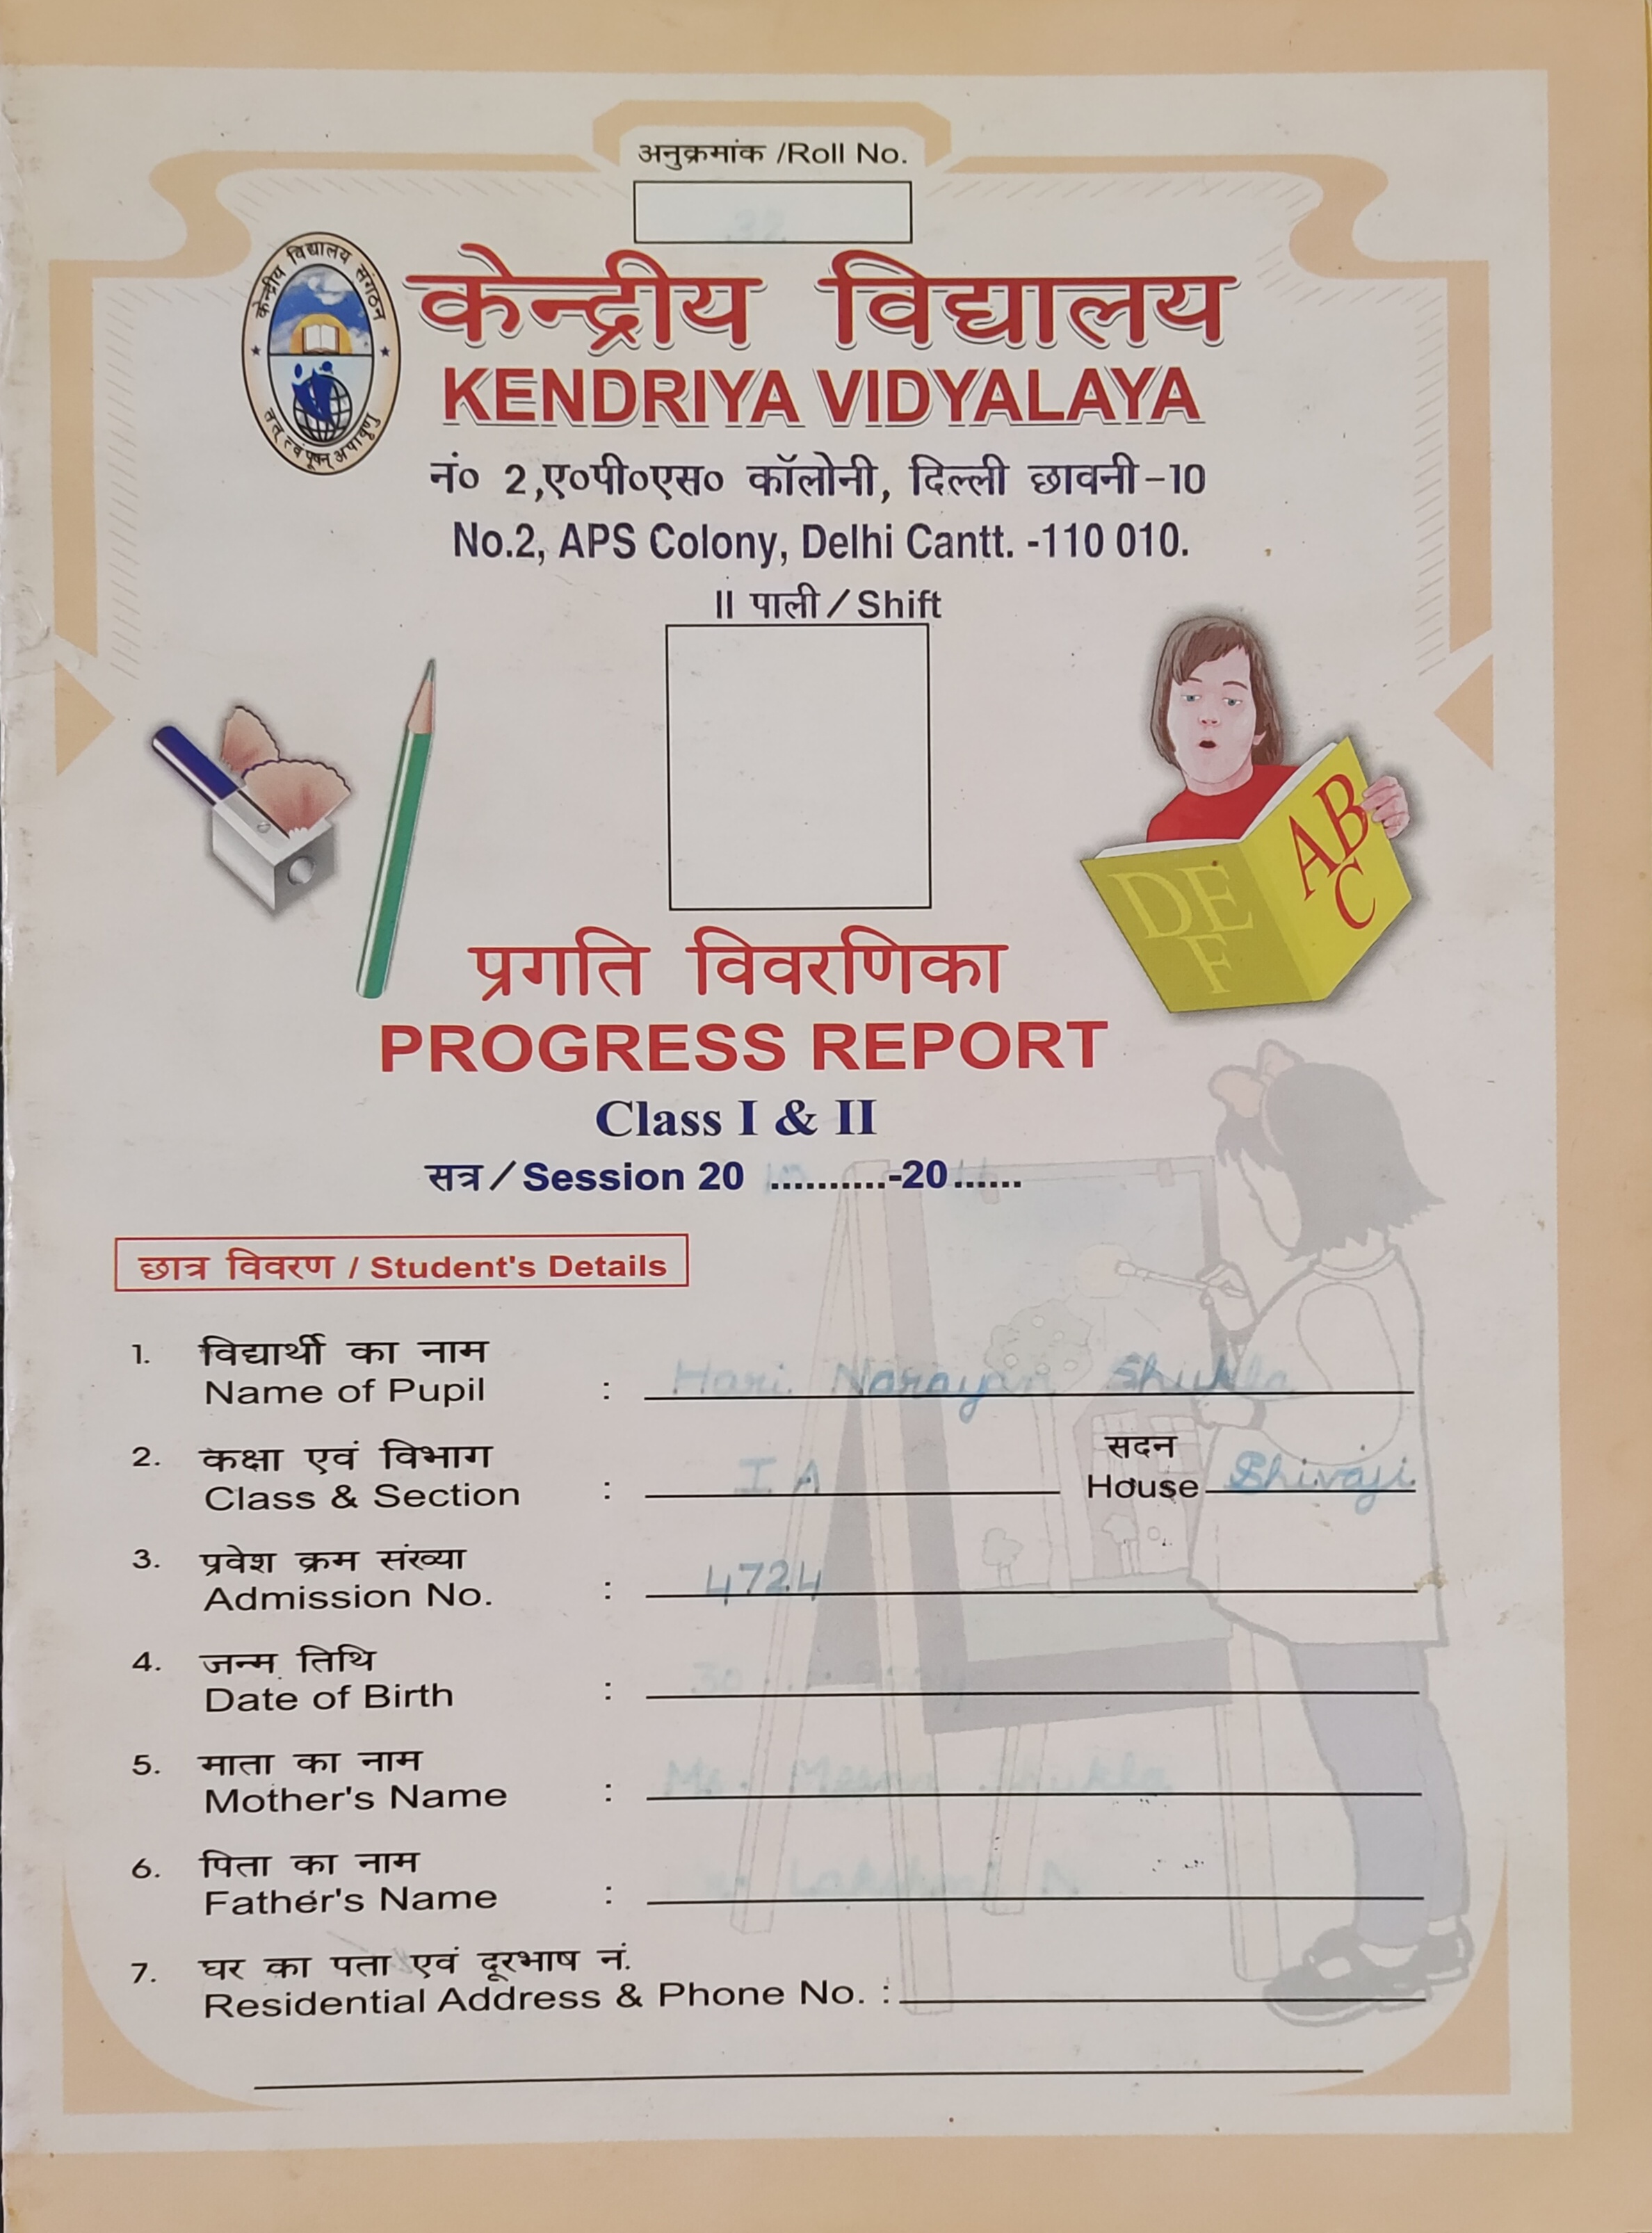 अनुक्रमांक /Roll No.
38
केन्द्रीय विद्यालय संगठन
तत् त्वं पूषन् अपावृणु
केन्द्रीय विद्यालय
KENDRIYA VIDYALAYA
नं० 2,ए०पी०एस० कॉलोनी, दिल्ली छावनी-10
No.2, APS Colony, Delhi Cantt. -110 010.
II पाली / Shift
AB
C
DE
F
प्रगति विवरणिका
PROGRESS REPORT
Class I & II
सत्र / Session 20 ..........-20......
छात्र विवरण / Student's Details
1. विद्यार्थी का नाम
Name of Pupil : Hari Narayan Shukla
2. कक्षा एवं विभाग सदन
Class & Section : I A House Shivaji
3. प्रवेश क्रम संख्या
Admission No. : 4724
4. जन्म तिथि
Date of Birth : 30
5. माता का नाम
Mother's Name : Shukla
6. पिता का नाम
Father's Name : Lakshmi N
7. घर का पता एवं दूरभाष नं.
Residential Address & Phone No. :